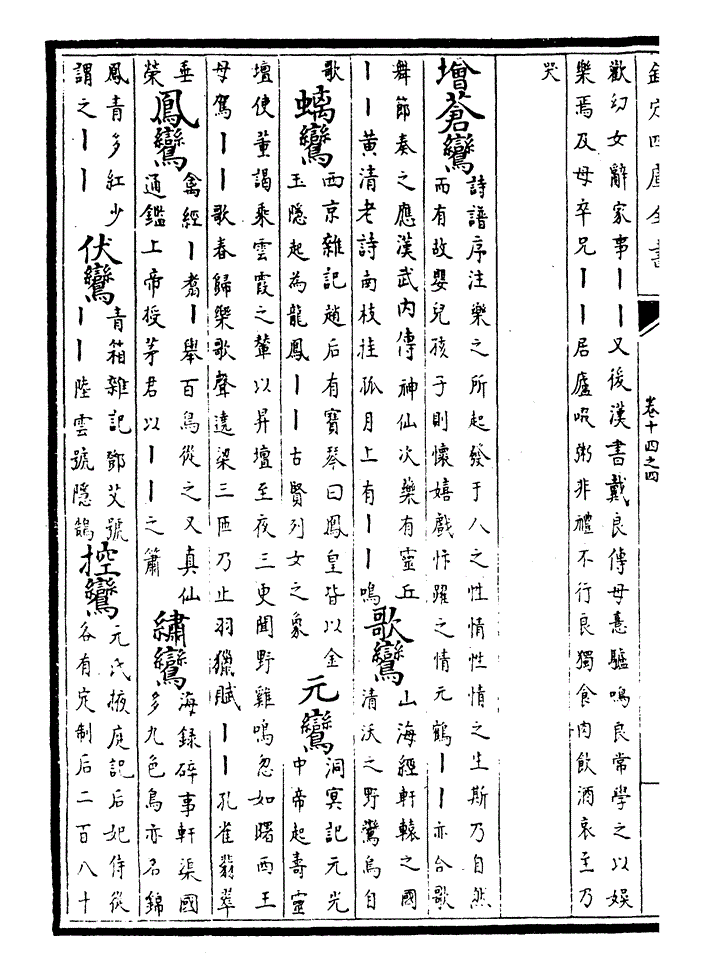 欽定四庫全書
卷十四之四
歡幼女辭家事丨丨又後漢書戴良傳母憙驢鳴良常學之以娛
樂焉及母卒兄丨丨居廬啜粥非禮不行良獨食肉飲酒哀至乃
哭
增蒼鸞
詩譜序注樂之所起發于人之性情性情之生斯乃自然
而有故嬰兒孩子則懷嬉戲忭躍之情元鶴丨丨亦合歌
舞節奏之應漢武內傳神仙次藥有靈丘
丨丨黃清老詩南枝挂孤月上有丨丨鳴
歌鸞
山海經軒轅之國
清沃之野鸞鳥自
歌
螭鸞
西京雜記趙后有寶琴曰鳳皇皆以金
玉隱起為龍鳳丨丨古賢列女之象
元鸞
洞冥記元光
中帝起壽靈
壇使董謁乘雲霞之輦以昇壇至夜三更聞野雞鳴忽如曙西王
母駕丨丨歌春歸樂歌聲遶梁三匝乃止羽獵賦丨丨孔雀翡翠
垂
榮
鳳鸞
禽經丨翥丨舉百鳥從之又真仙
通鑑上帝授茅君以丨丨之簫
繡鸞
海錄碎事軒渠國
多九色鳥亦名錦
鳳青多紅少
謂之丨丨
伏鸞
青箱雜記鄧艾號
丨丨陸雲號隱鵠
控鸞
元氏掖庭記后妃侍從
各有定制后二百八十